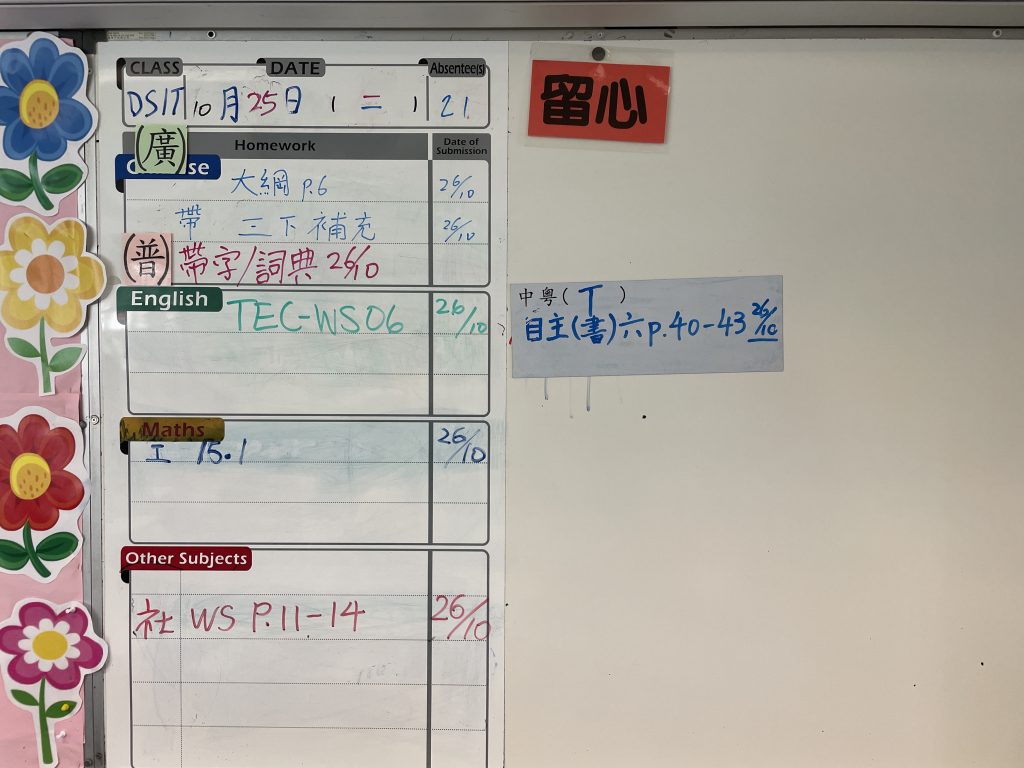 CLASS DATE Absentee(s)
DSIT 10月25日 ( 二 ) 21
Homework Date of Submission
(廣)
大綱 P.6 26/10
帶 三下補充 26/10
(普) 帶字/詞典 26/10
English
TEC-WS06 26/10
Maths
工 15.1 26/10
Other Subjects
社 WS P.11-14 26/10
留心
中粵( T )
自主(書)六p.40-43 26/10